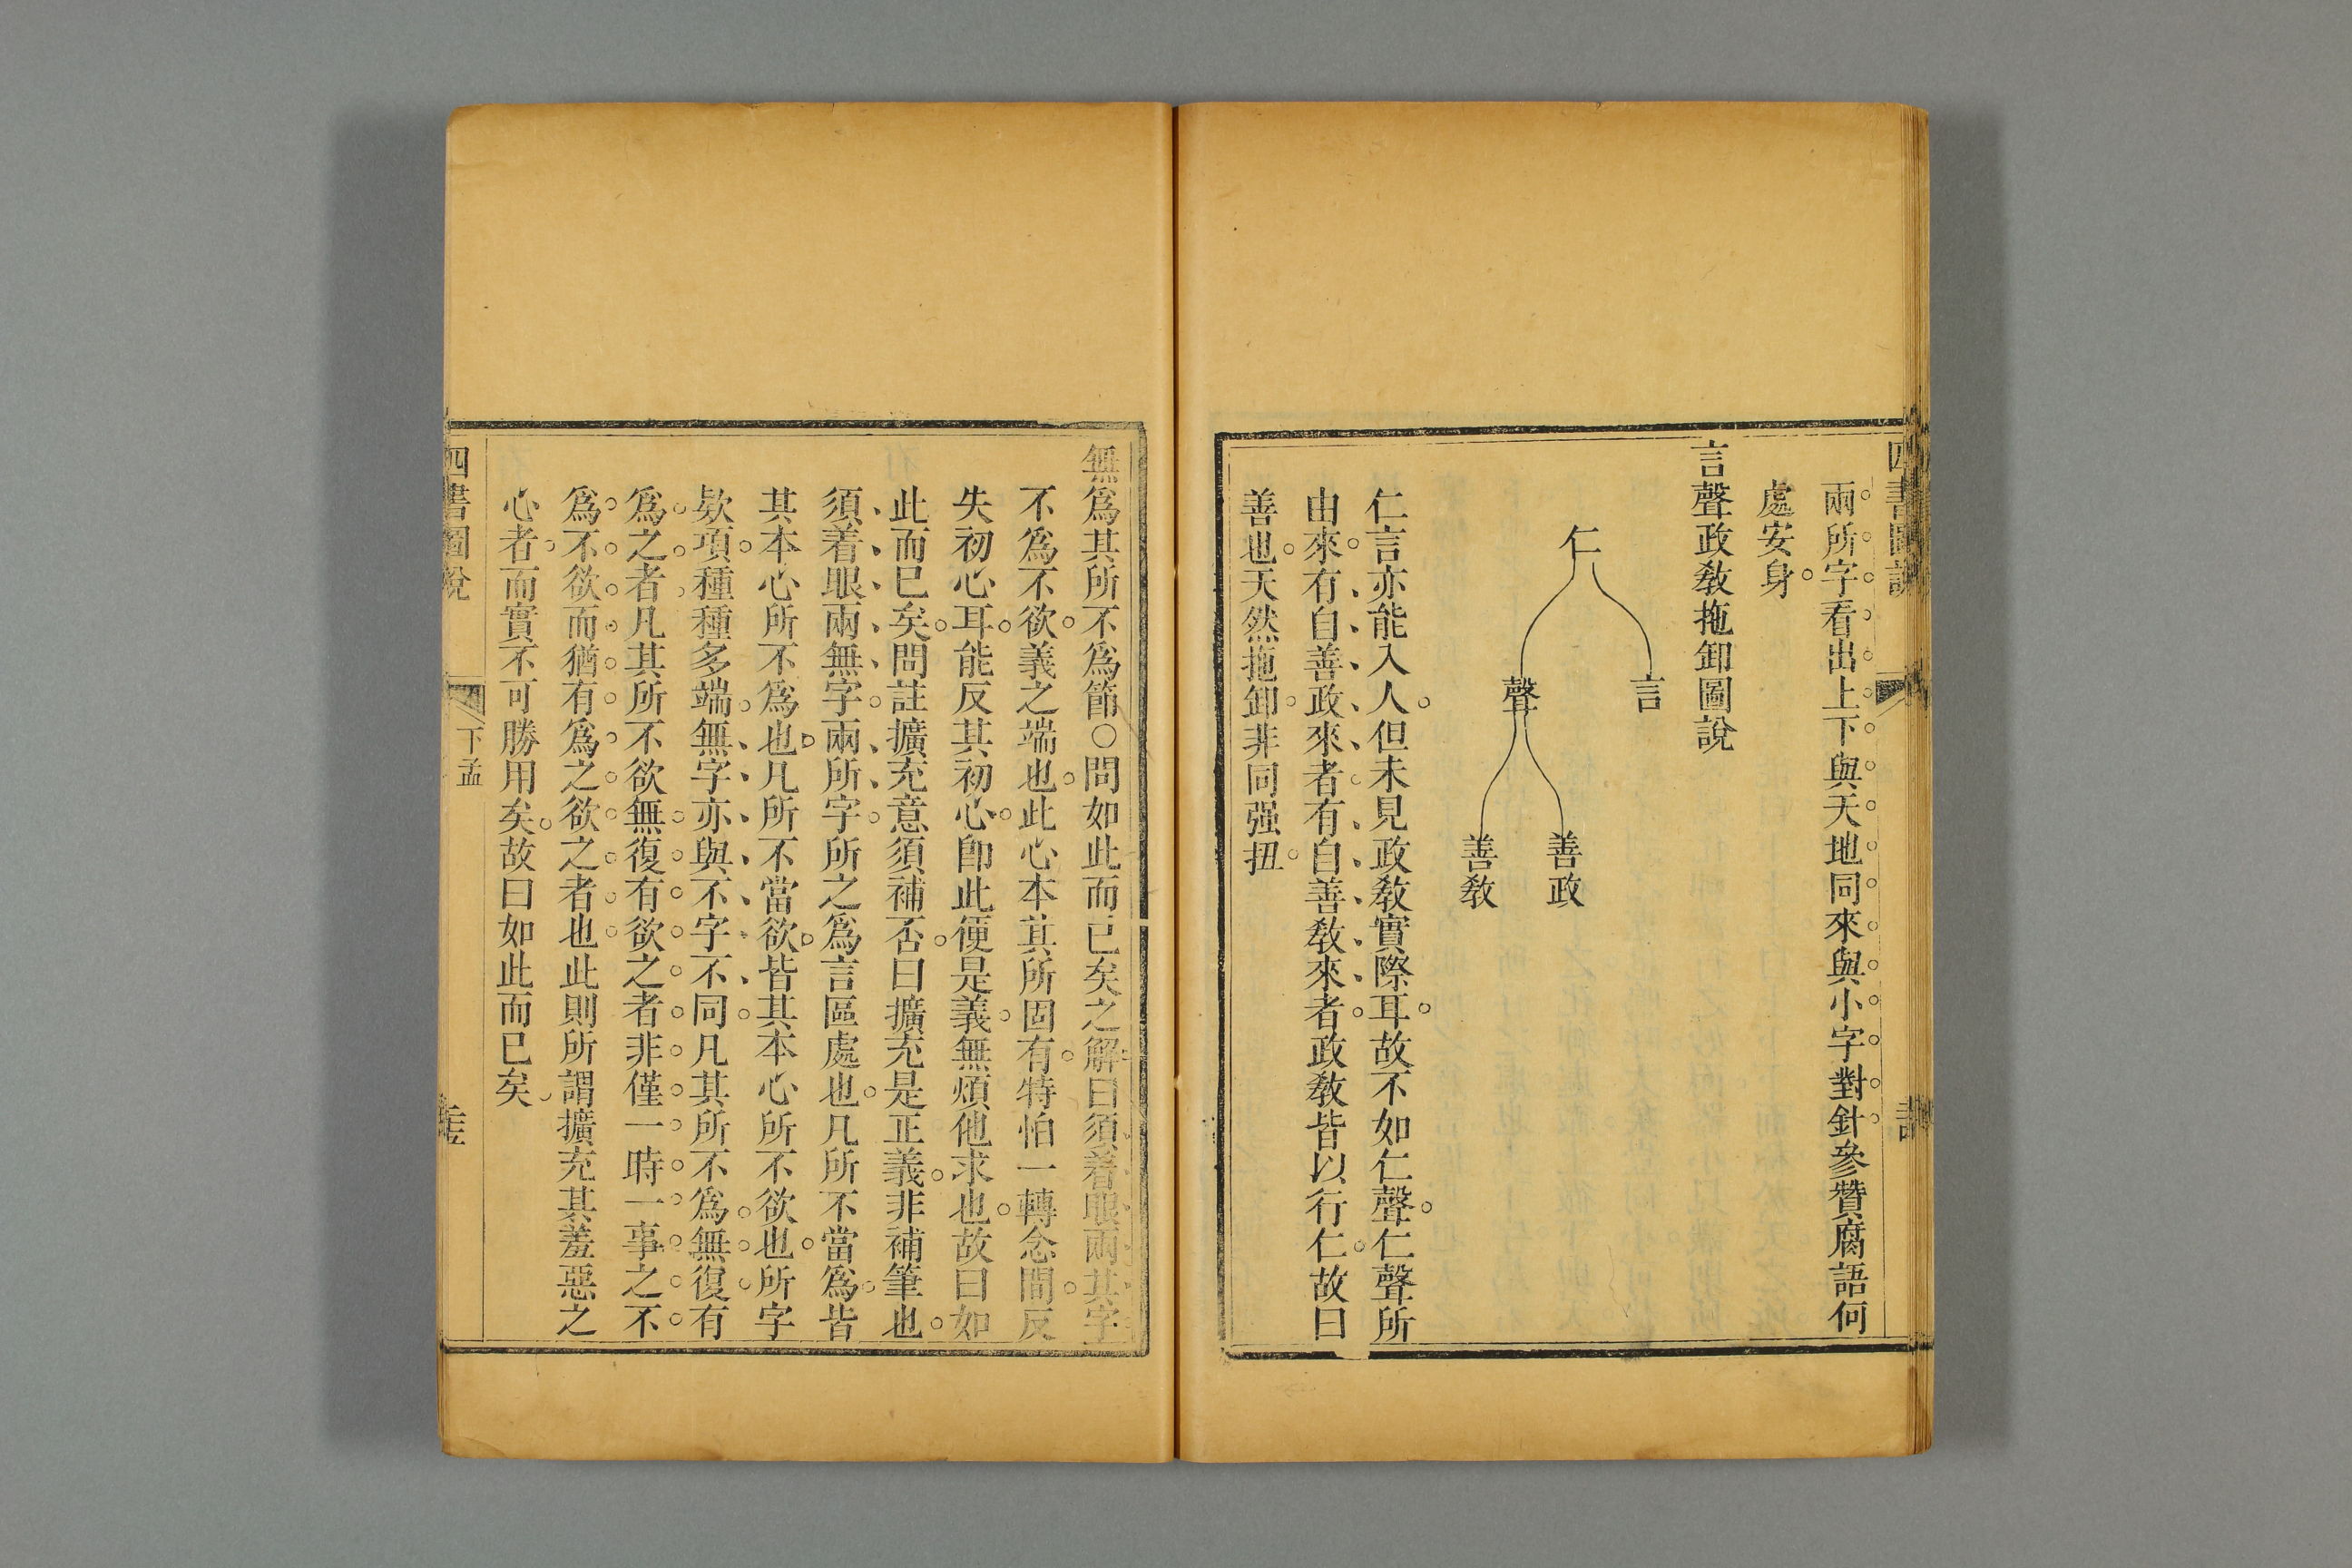 四書圖說
兩所字看出上下與天地同來與小字對針參贊腐語何
處安身
言聲政教拖卸圖說
仁
言
聲
善政
善教
仁言亦能入人但未見政教實際耳故不如仁聲仁聲所
由來有自善政來者有自善教來者政教皆以行仁故曰
善也天然拖卸非同强扭
無爲其所不爲節○問如此而已矣之解曰須着眼兩其字
不爲不欲義之端也此心本其所固有特怕一轉念間反
失初心耳能反其初心卽此便是義無煩他求也故曰如
此而已矣問註擴充意須補否曰擴充是正義非補筆也
須着眼兩無字兩所字所之爲言區處也凡所不當爲皆
其本心所不爲也凡所不當欲皆其本心所不欲也所字
欵項種種多端無字亦與不字不同凡其所不爲無復有
爲之者凡其所不欲無復有欲之者非僅一時一事之不
爲不欲而猶有爲之欲之者也此則所謂擴充其羞惡之
心者而實不可勝用矣故曰如此而已矣
四書圖說
下孟